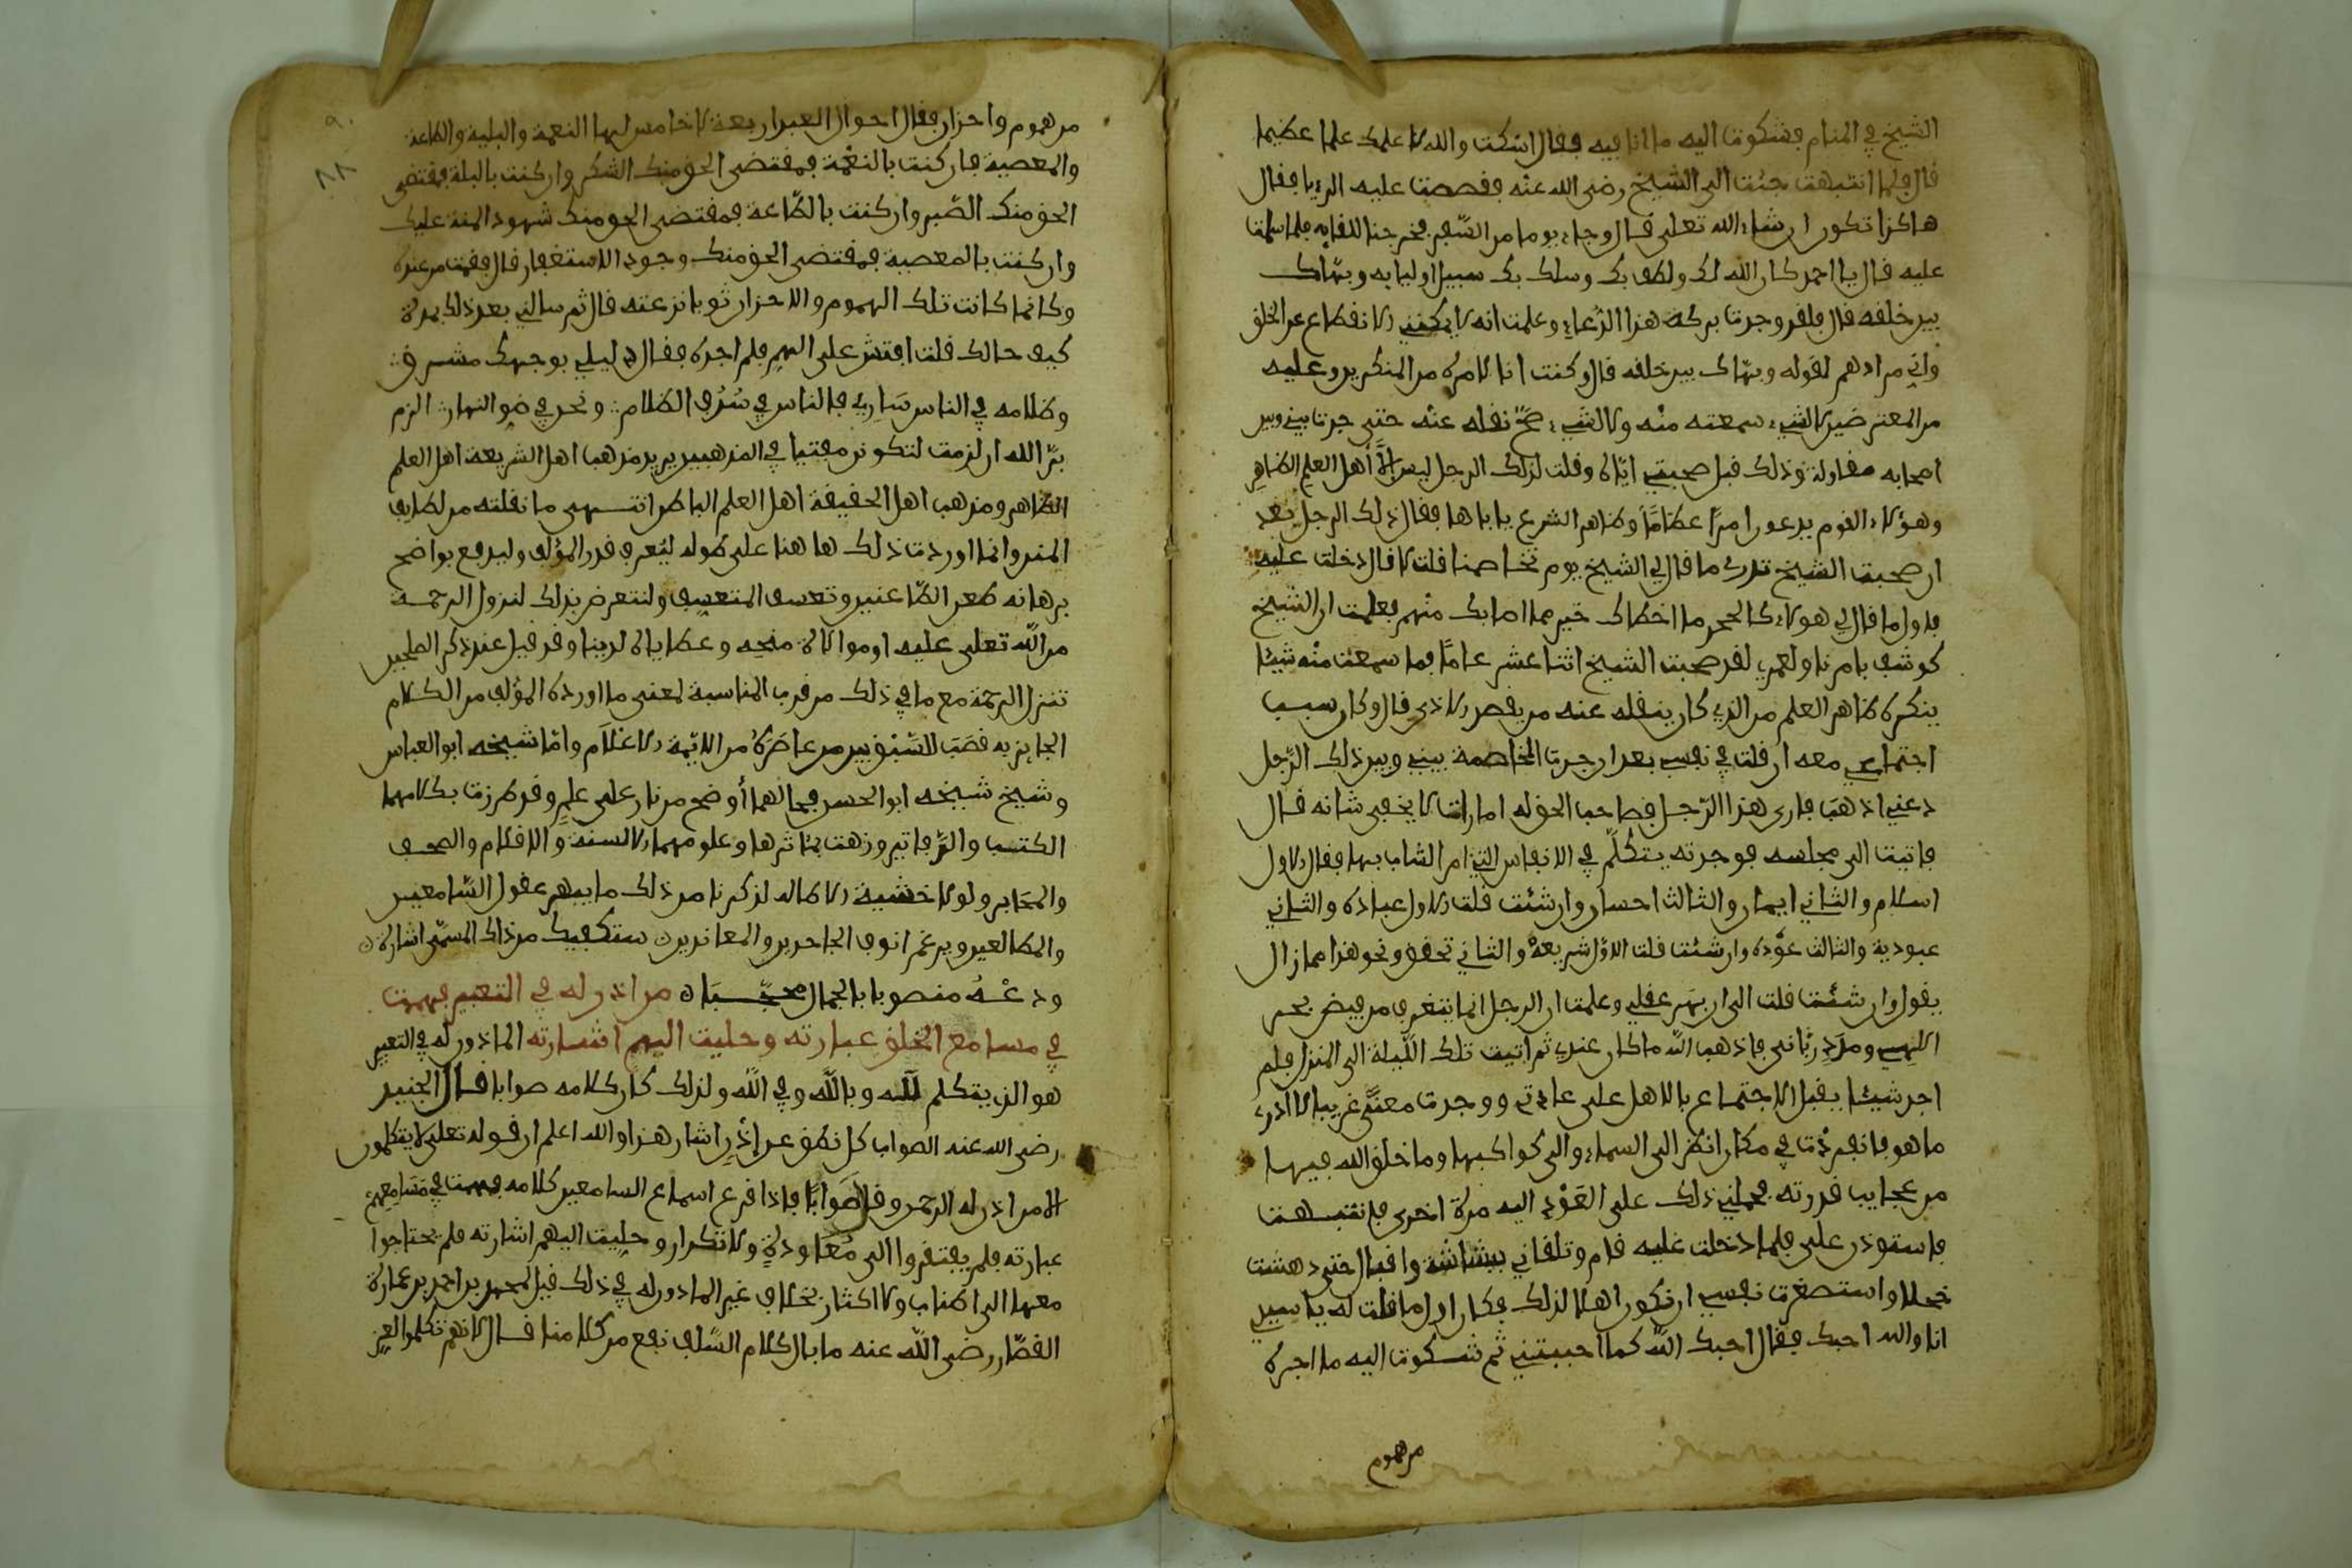 الشيخ في المنام فشكوت اليه ما انا فيه فقال اسكت والله لاعلمنك علما عظيما
قال فلما انتبهت جئت الى الشيخ رضي الله عنه فقصصت عليه الرؤيا فقال
هاكذا تكون ان شاء الله تعلى قال وجاء يوما من السفر فخرجنا للقايه فلما سلمت
عليه قال يا احمد كان الله لك ولطف بك وسلك بك سبيل اوليايه وبهاك
بين خلقه قال فلقد وجدت بركة هذا الدعاء وعلمت انه لا يمكنني الانقطاع عن الخلق
واني مراد بهم لقوله وبهاك بين خلقه قال وكنت انا لامره من المنكرين وعليه
من المعترضين لا لشيء سمعته منه ولا لشيء صح نقله عنه حتى جرت بيني وبين
اصحابه مقاولة وذلك قبل صحبتي اياه وقلت لذلك الرجل ليس الا اهل العلم الظاهر
وهؤلاء القوم يدعون امرا عظاما وظاهر الشرع ياباها فقال ذلك الرجل بعد
ان صحبت الشيخ تدري ما قال لي الشيخ يوم تخاصمنا قلت لا قال دخلت عليه
فاول ما قال لي هؤلاء كالحجر ما اخطاك خير مما اصابك منهم فعلمت ان الشيخ
كوشف بامرنا ولعمري لقد صحبت الشيخ اثنا عشر عاما فما سمعت منه شيئا
ينكره ظاهر العلم من الذي كان ينقله عنه من يقصد الاذى قال وكان سبب
اجتماعي معه ان قلت في نفسي بعد ان جرت المخاصمة بيني وبين ذلك الرجل
دعني اذهب فارى هذا الرجل فصاحب الحق له امارات لا يخفى شانه قال
فاتيت الى مجلسه فوجدته يتكلم في الانفاس التي امر الشارع بها فقال الاول
اسلام والثاني ايمان والثالث احسان وان شئت قلت الاول عبادة والثاني
عبودية والثالث عبودة وان شئت قلت الاول شريعة والثاني تحقق ونحو هذا فما زال
يقول وان شئت قلت الى ان بهر عقلي وعلمت ان الرجل انما يغترف من فيض بحر
الهي ومدد رباني فاذهب الله ما كان عندي ثم اتيت تلك الليلة الى المنزل فلم
اجد شيئا يقبل الاجتماع بالاهل على عادتي ووجدت معنى غريبا لا ادري
ما هو فانفردت في مكان انظر الى السماء والى كواكبها وما خلق الله فيها
من عجايب قدرته فحملني ذلك على العود اليه مرة اخرى فانتبهت
فاستوذن علي فلما دخلت عليه قام وتلقاني ببشاشة واقبال حتى دهشت
خجلا واستصغرت نفسي ان اكون اهلا لذلك فكان اول ما قلت له يا سيدي
انا والله احبك فقال احبك الله كما احببتني ثم شكوت اليه ما اجده
من هموم
٩٠
٨٨
من هموم واحزان فقال احوال العبد اربعة لا خامس لها النعمة والبلية والطاعة
والمعصية فان كنت بالنعمة فمقتضى الحق منك الشكر وان كنت بالبلية فمقتضى
الحق منك الصبر وان كنت بالطاعة فمقتضى الحق منك شهود المنة عليك
وان كنت بالمعصية فمقتضى الحق منك وجود الاستغفار قال فقمت من عنده
وكانما كانت تلك الهموم والاحزان ثوبا نزعته قال ثم سالني بعد ذلك بمدة
كيف حالك قلت افتش على الهم فلم اجده فقال لي ليلي بوجهك مشرق
وظلامه في الناس ساري فالناس في سدف الظلام ونحن في ضوء النهار الزم
فو الله ان لزمت لتكونن مفتيا في المذهبين يريد مذهب اهل الشريعة اهل العلم
الظاهر ومذهب اهل الحقيقة اهل العلم الباطن انتهى ما نقلته من لطايف
المنن وانما اوردت ذلك هاهنا على طوله ليعرف قدر المؤلف وليدفع بواضح
برهانه طعن الطاعنين وتعسف المتعسف ولنتعرض بذلك لنزول الرحمة
من الله تعلى عليه او موالاة منحه وعطاياه لدينا وقد قيل عند ذكر الصالحين
تنزل الرحمة مع ما في ذلك من قرب المناسبة لمعنى ما اورده المؤلف من الكلام
الحايز به قصب السبق بين من عاصره من الايمة الاعلام واما شيخه ابو العباس
وشيخ شيخه ابو الحسن فحالهما أوضح من نار على علم وقد طرزت بكلامهما
الكتب والدفاتير وزهت بمآثرها وعلومهما الالسنة والاقلام والصحف
والمحابر ولولا خشية الاطالة لذكرنا من ذلك ما يبهر عقول السامعين
والمطالعين ويرغم انوف الجاحدين والمعاندين ستكفيك من ذاك المسمى اشارة
ودعه مصونا بالجمال محجبا من اذن له في التعبير فهمت
في مسامع الخلق عبارته وجليت اليهم اشارته الماذون له في التعبير
هو الذي يتكلم لله وبالله وفي الله ولذلك كان كلامه صوابا قال الجنيد
رضي الله عنه الصواب كل نطق عن اذن اشار هذا والله اعلم ان قوله تعلى لا يتكلمون
الا من اذن له الرحمن وقال صوابا فاذا قرع اسماع السامعين كلامه فهمت في مسامعهم
عبارته فلم يفتقروا الى معاودة ولا تكرار وجليت اليهم اشارته فلم يحتاجوا
معها الى اطناب ولا اكثار بخلاف غير الماذون له في ذلك قيل لحمدون بن احمد بن عمارة
القصار رضي الله عنه ما بال كلام السلف نفع من كلامنا قال لانهم تكلموا لعز